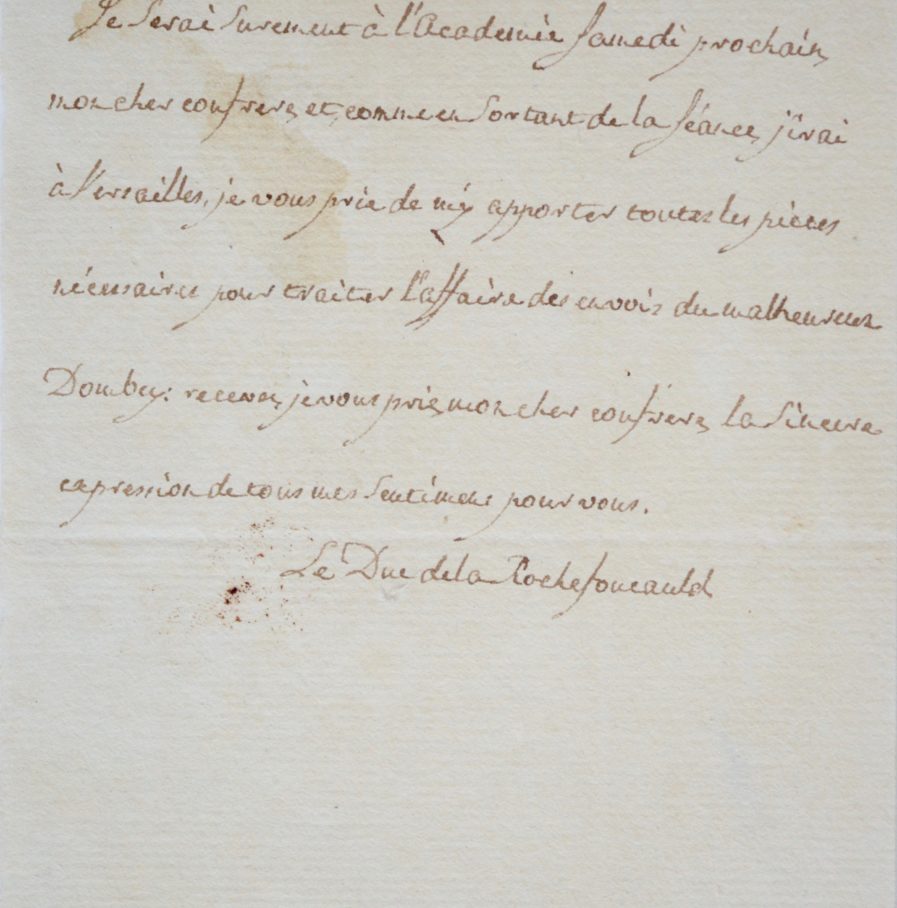 Je serai surement à l'Academie samedi prochain,
mon cher confrere, et comme en sortant de la séance, j'irai
à Versailles, je vous prie de m'y apporter toutes les pièces
nécessaires pour traiter l'affaire des envois du malheureux
Dombey: recevez, je vous prie, mon cher confrere, la sincere
expression de tous mes sentimens pour vous.
Le Duc de la Rochefoucauld